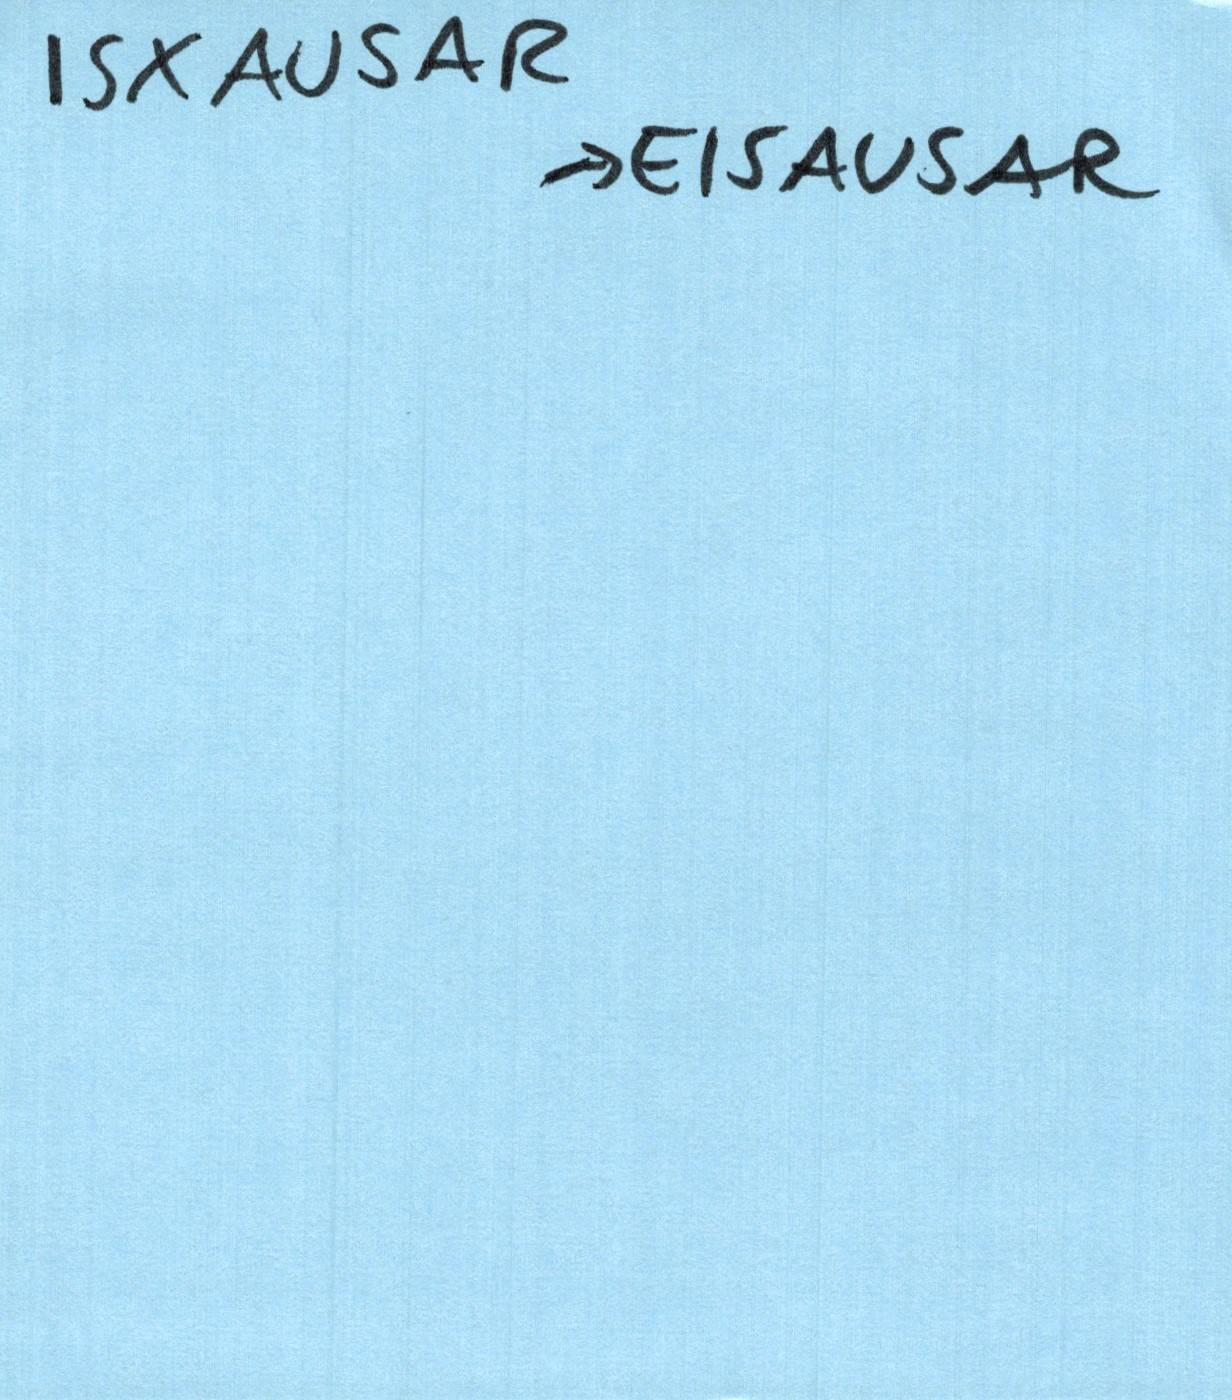 ISXAUSAR
→EISAUSAR